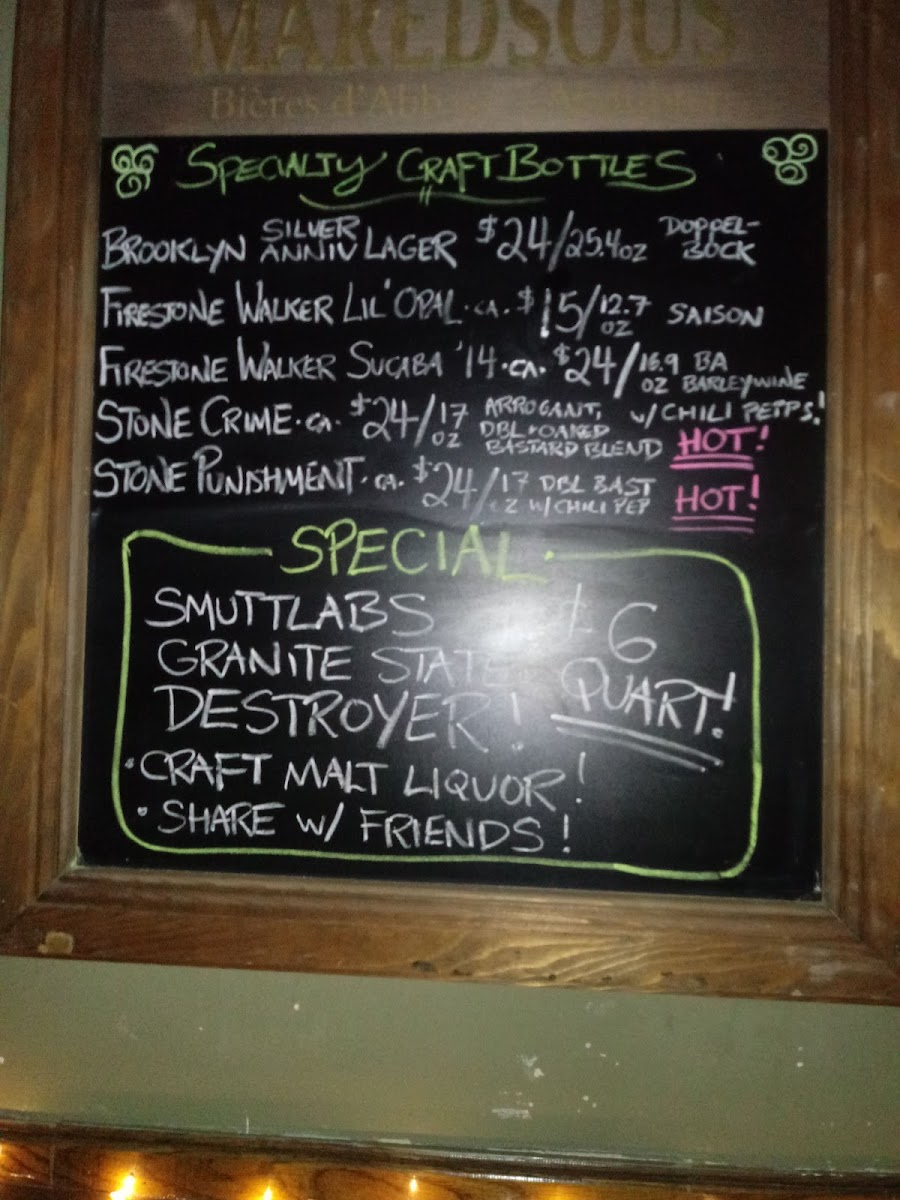 MAREDSOUS
Bières d'Abb
SPECIALTY CRAFT BOTTLES
BROOKLYN SILVER ANNIV LAGER $24/25.4oz DOPPEL-BOCK
FIRESTONE WALKER LIL' OPAL · CA. $15/12.7 OZ SAISON
FIRESTONE WALKER SUCABA '14 · CA. $24/16.9 OZ BA BARLEYWINE
STONE CRIME · CA. $24/17 OZ ARROGANT, DBL + OAKED BASTARD BLEND w/ CHILI PEPPS! HOT!
STONE PUNISHMENT · CA. $24/17 OZ DBL BAST W/ CHILI PEP HOT!
SPECIAL
SMUTTLABS
GRANITE STATE
DESTROYER!
$6
QUART!
• CRAFT MALT LIQUOR!
• SHARE W/ FRIENDS!